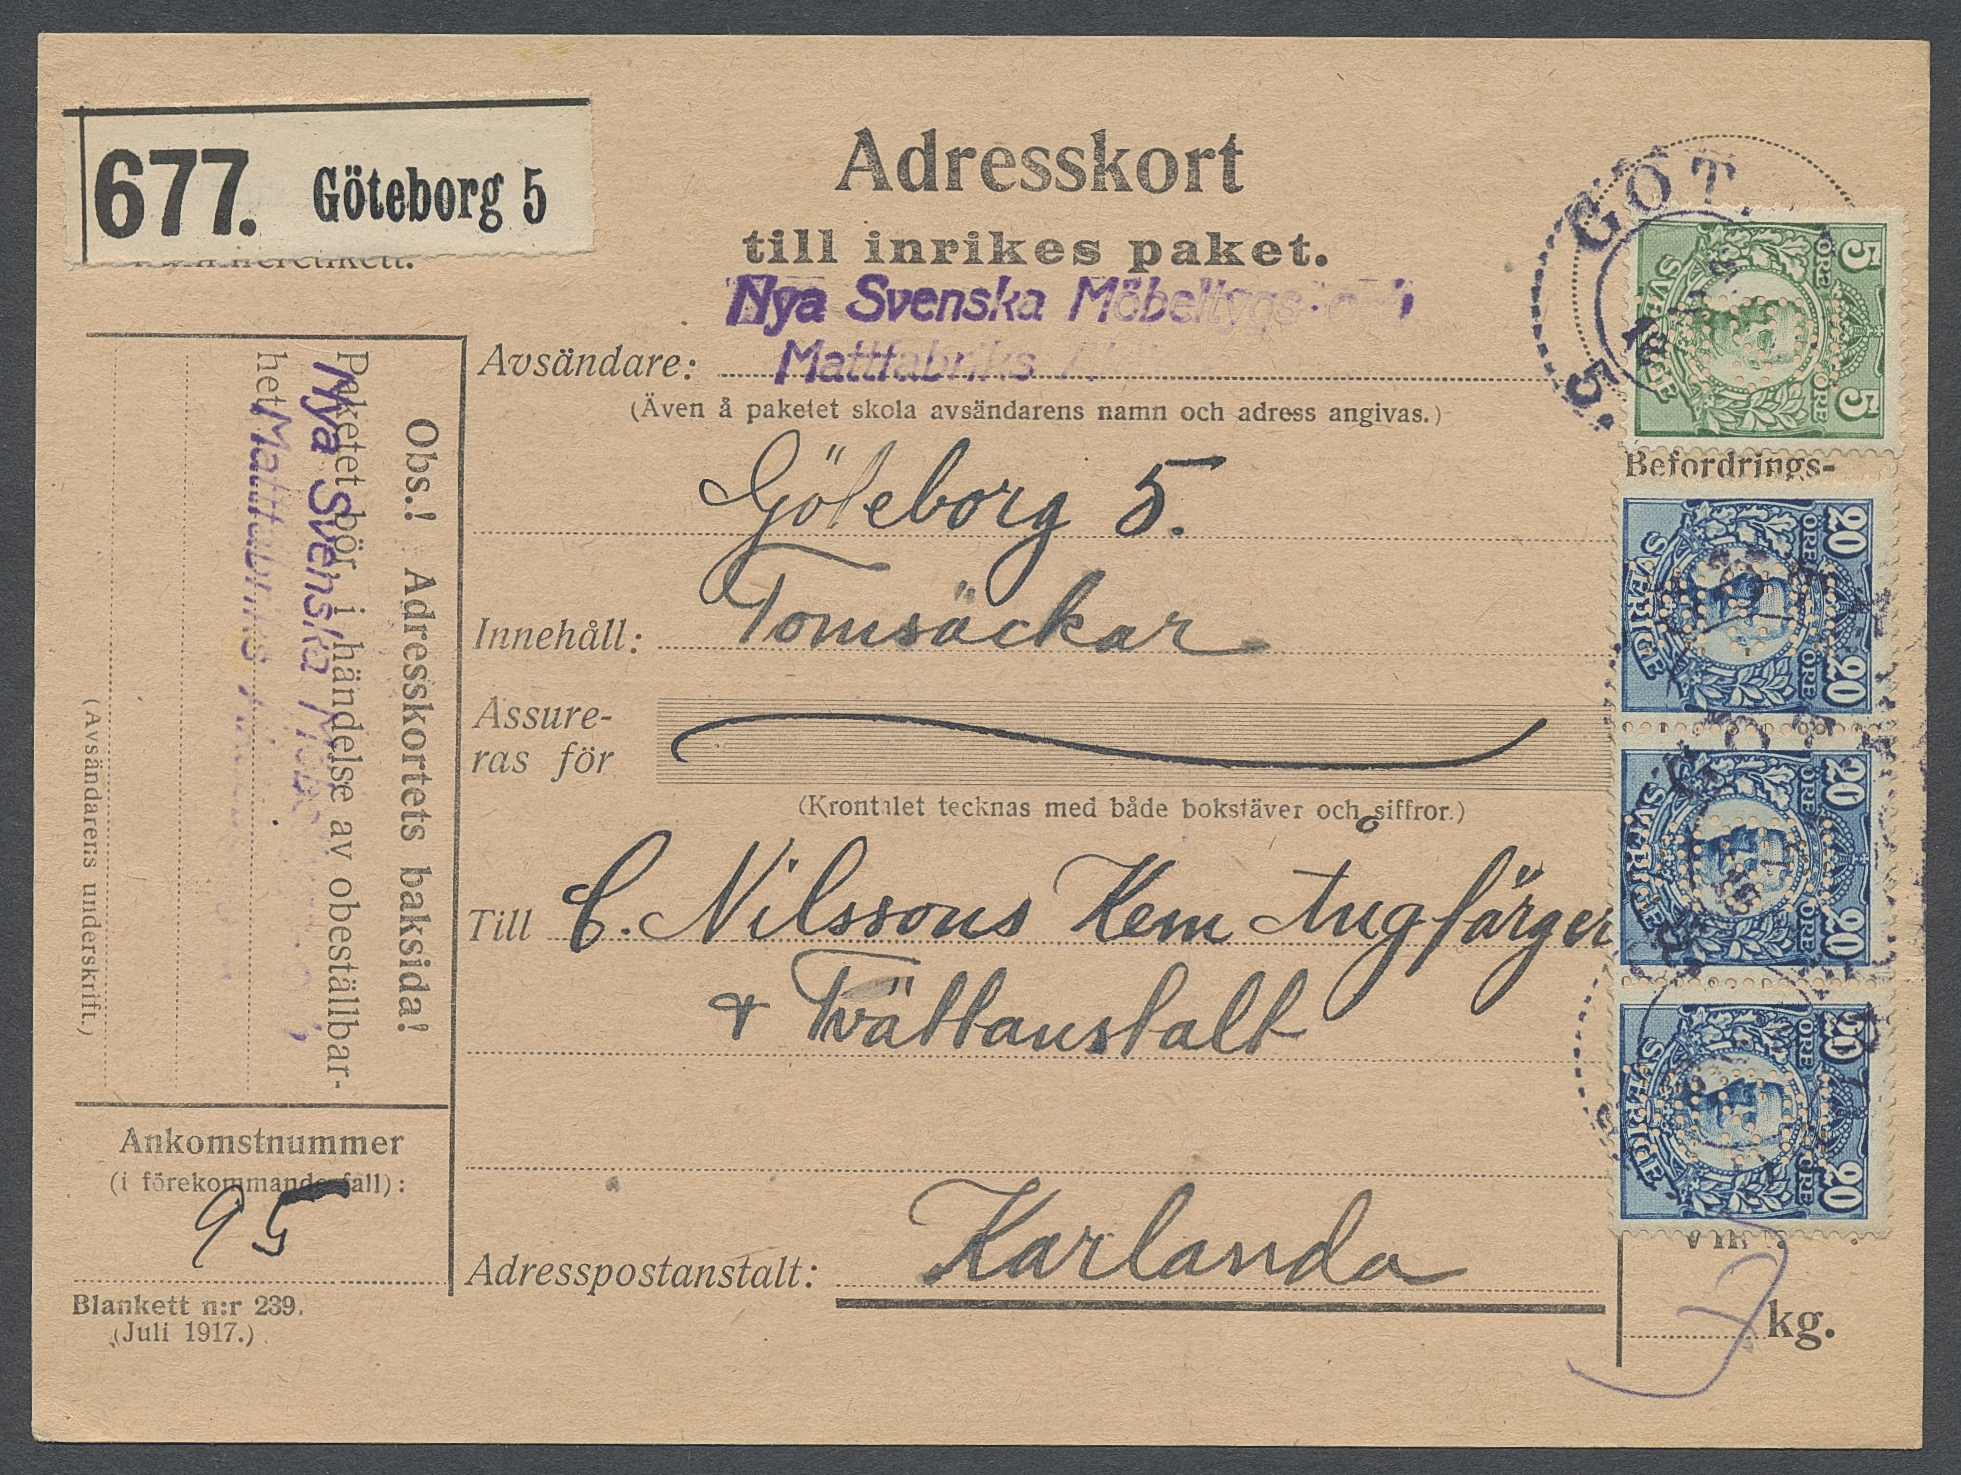 677. Göteborg 5
Adresskort
till inrikes paket.
Nya Svenska Möbeltygs- och
Avsändare: Mattfabriks
(Även å paketet skola avsändarens namn och adress angivas.)
Göteborg 5.
Innehåll: Tomsäckar
Assure-
ras för
(Krontalet tecknas med både bokstäver och siffror.)
Till C. Nilssons Kem Ångfärgeri
& Tvättanstalt
Adresspostanstalt: Karlanda
Obs.! Adresskortets baksida!
Paketet bör, i händelse av obeställbar-
het
Nya Svenska
Mattfabriks
(Avsändarens underskrift.)
Ankomstnummer
(i förekommande fall):
95
Blankett n:r 239.
(Juli 1917.)
GÖT
5.
5 ÖRE SVERIGE ÖRE 5
Befordrings-
20 ÖRE SVERIGE ÖRE 20
20 ÖRE SVERIGE ÖRE 20
20 ÖRE SVERIGE ÖRE 20
kg.